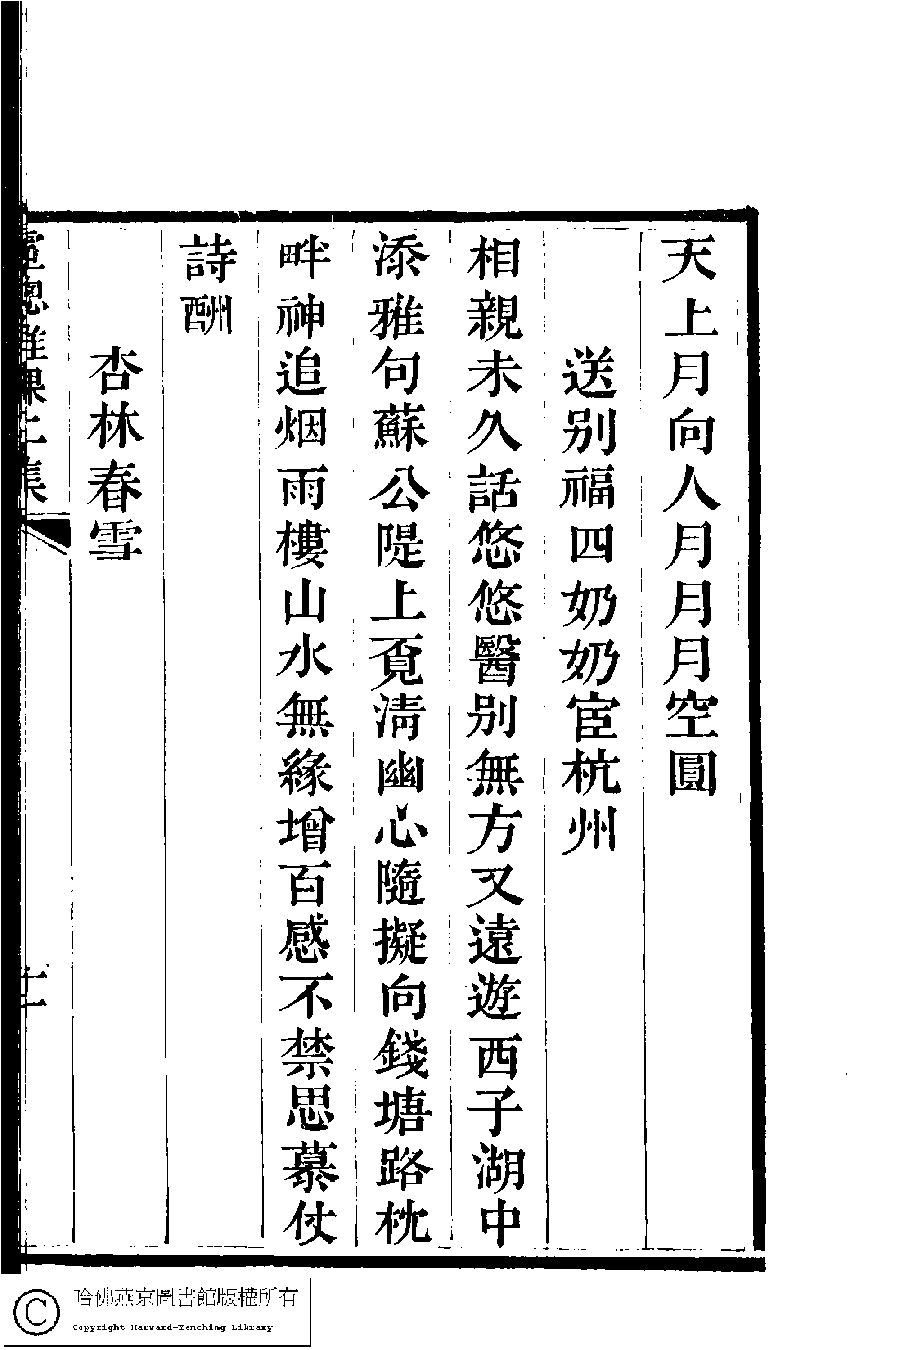 天上月向人月月月空圓
送别福四奶奶宦杭州
相親未久話悠悠醫别無方又遠遊西子湖中
添雅句蘇公隄上覔清幽心隨擬向錢塘路枕
畔神追烟雨樓山水無緣增百感不禁思慕仗
詩酬
杏林春雪
課二集
十一
哈佛燕京圖書館版權所有
Copyright Harvard-Yenching Library